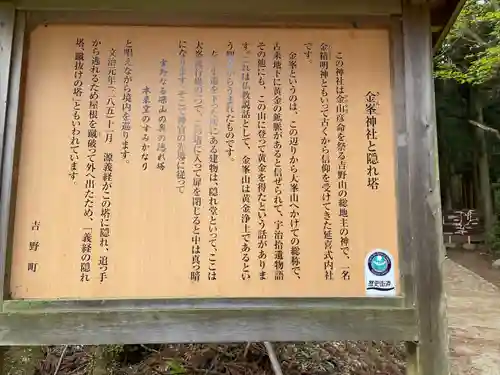 金峯神社と隠れ塔
この神社は金山彦命を祭る吉野山の総地主の神で、一名
金精明神ともいって古くから信仰を受けてきた延喜式内社
です。
金峯というのは、この辺りから大峯山へかけての総称で、
古来地下に黄金の鉱脈があると信ぜられて、宇治拾遺物語
その他にも、この山に登って黄金を得たという話がありま
す。これは仏教説話として、金峯山は黄金浄土であるとい
う
からうまれたものです。
を下った
にある建物は、隠れ堂といって、ここは
大峯修行場の一つで、この塔に入って扉を閉じると中は真っ暗
になります。そこで神官の先導に従って
吉野なる深山の奥の隠れ塔
本来空のすみかなり
と唱えながら境内を巡ります。
文治元年(一一八五)十一月 源義経がこの塔に隠れ、追っ手
から逃れるため屋根を蹴破って外へ出たため、「義経の隠れ
塔、蹴抜けの塔」ともいわれています。
吉野町
歴史街道